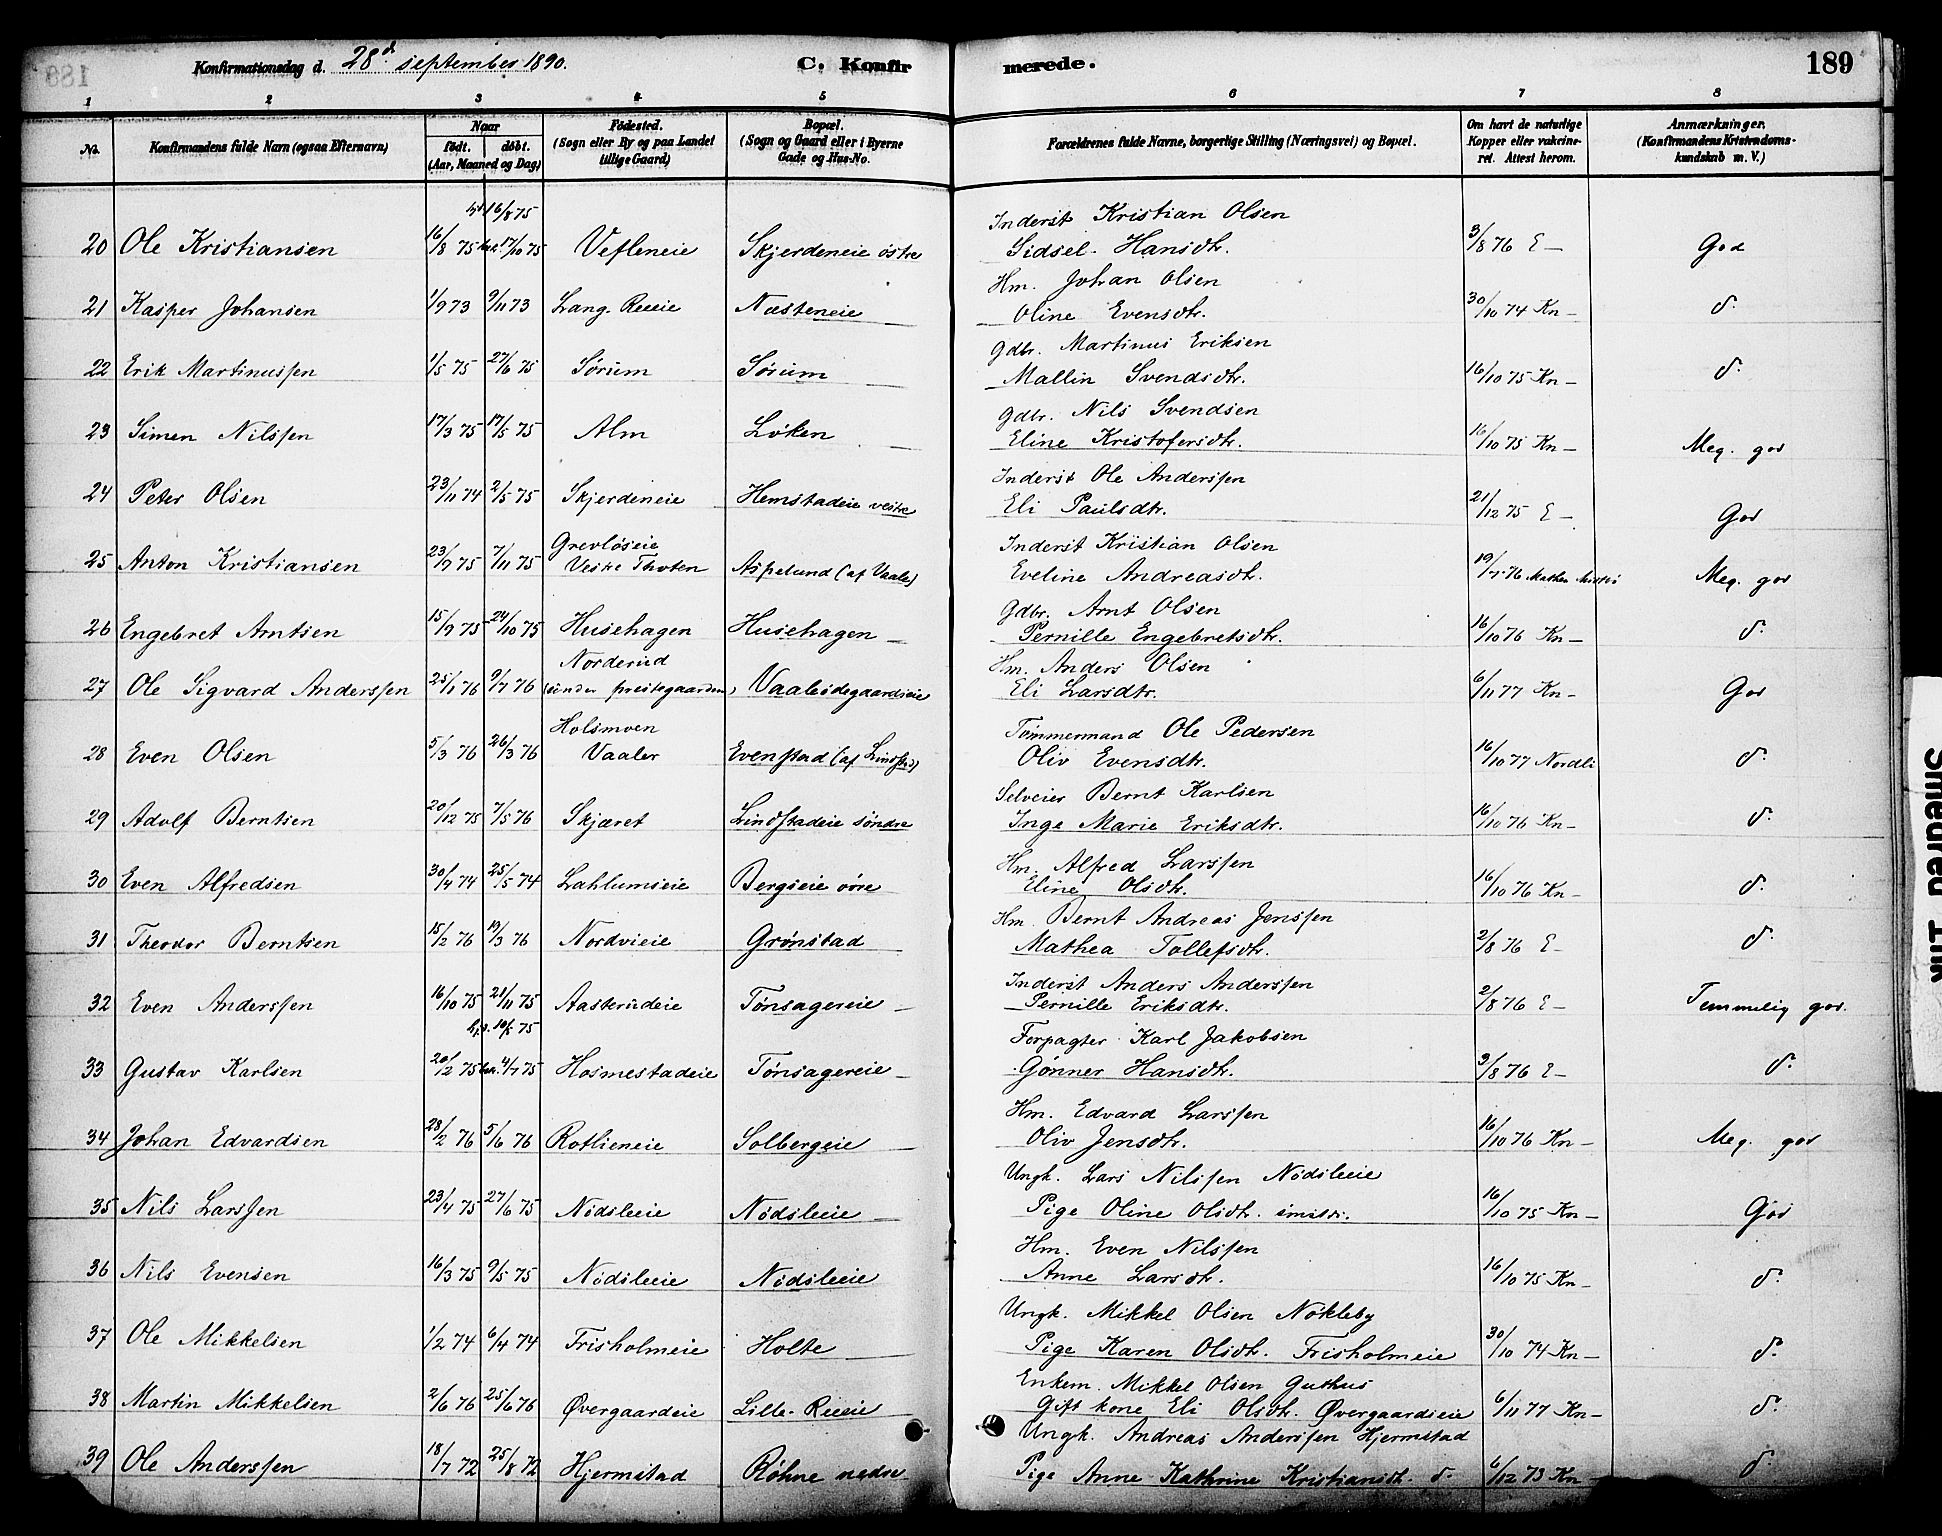 Konfirmationsdag d. 28d september 1890. C. Konfirmerede. 189
1 2 3 4 5 6 7 8
No. Konfirmandens fulde Navn (ogsaa Efternavn) Naar født. døbt. (Aar, Maaned og Dag) Fødested. (Sogn eller By og paa Landet tillige Gaard) Bopæl. (Sogn og Gaard eller i Byerne Gade og Hus-No. Forældrenes fulde Navne, borgerlige Stilling (Næringsvei) og Bopæl. Om havt de naturlige Kopper eller vakcineret. Attest herom. Anmærkninger. (Konfirmandens Kristendomskundskab m. V.)
hjd. 16/8 75 Inderst Kristian Olsen
20 Ole Kristiansen 16/8 75 17/10 75 Vefleneie Skjerdeneie østre Sidsel Hansdtr. 3/8 76 E — God
Hm. Johan Olsen
21 Kasper Johansen 1/9 73 9/11 73 Lang. Reeie Næsteneie Oline Evensdtr. 30/10 74 Kn — d.
Gdbr. Martinus Eriksen
22 Erik Martinussen 1/5 75 27/6 75 Sørum Sørum Mallin Svendsdtr. 16/10 75 Kn — d.
Gdbr. Nils Svendsen
23 Simen Nilssen 17/3 75 17/5 75 Alm Løken Eline Kristofersdtr. 16/10 75 Kn — Meg. god
Inderst Ole Anderssen
24 Peter Olsen 23/11 74 2/5 75 Skjerdeneie Hemstadeie vestre Eli Paulsdtr. 21/12 75 E — God
Grevløseie Inderst Kristian Olsen
25 Anton Kristiansen 23/9 75 7/11 75 Vestre Thoten Aspelund (af Vaale) Eveline Andreasdtr. 19/7 76 Meg. god
Gdbr. Arnt Olsen
26 Engebret Arntsen 15/9 75 24/10 75 Husehagen Husehagen Pernille Engebretsdtr. 16/10 76 Kn — d.
Norderud Hm. Anders Olsen
27 Ole Sigvard Anderssen 25/1 76 9/7 76 (under prestegaarden) Vaaleødegaardseie Eli Larsdtr. 6/11 77 Kn — God
Holsmoen Tømmermand Ole Pedersen
28 Even Olsen 5/3 76 26/3 76 Vaaler Evenstad (af Lindstad) Oliv Evensdtr. 16/10 77 Nordli d.
Selveier Bernt Karlsen
29 Adolf Berntsen 20/12 75 7/5 76 Skjæret Lindstadeie søndre Inge Marie Eriksdtr. 16/10 76 Kn — d.
Hm. Alfred Larssen
30 Even Alfredsen 30/4 74 25/5 74 Lahlumseie Bergseie øvre Eline Olsdtr. 16/10 76 Kn — d.
Hm. Bernt Andreas Jenssen
31 Theodor Berntsen 15/2 76 19/3 76 Nordvieie Grønstad Mathea Tollefsdtr. 2/8 76 E — d.
Inderst Anders Anderssen
32 Even Anderssen 16/10 75 21/11 75 Aasterudeie Tønsagereie Pernille Eriksdtr. 2/8 76 E — Temmelig god.
Forpagter Karl Jakobsen
33 Gustav Karlsen 20/2 75 4/7 75 Hosmestadeie Tønsagereie Gønner Hansdtr. 3/8 76 E — d.
Hm. Edvard Larssen
34 Johan Edvardsen 28/2 76 5/6 76 Rotlieneie Solbergeie Oliv Jensdtr. 16/10 76 Kn — Meg. god
Ungk. Lars Nilssen Nødsleeie
35 Nils Larssen 23/4 75 27/6 75 Nødsleeie Nødsleeie Pige Oline Olsdtr. 16/10 75 Kn — God
Hm. Even Nilssen
36 Nils Evensen 16/3 75 9/5 75 Nødsleeie Nødsleeie Anne Larsdtr. 16/10 75 Kn — d.
Ungk. Mikkel Olsen Nøkleby
37 Ole Mikkelsen 1/2 74 6/4 74 Frisholmeie Holte Pige Karen Olsdtr. Frisholmeie 30/10 74 Kn — d.
Enkem. Mikkel Olsen Guthus
38 Martin Mikkelsen 2/6 76 25/6 76 Øvergaardeie Lille-Reeie Gift kone Eli Olsdtr. Øvergaardseie 6/11 77 Kn — d.
Ungk. Andreas Anderssen Hjermstad
39 Ole Anderssen 18/7 72 25/8 72 Hjermstad Røhne nedre Pige Anne Kathrine Kristiansdtr. d. 6/12 73 Kn — d.